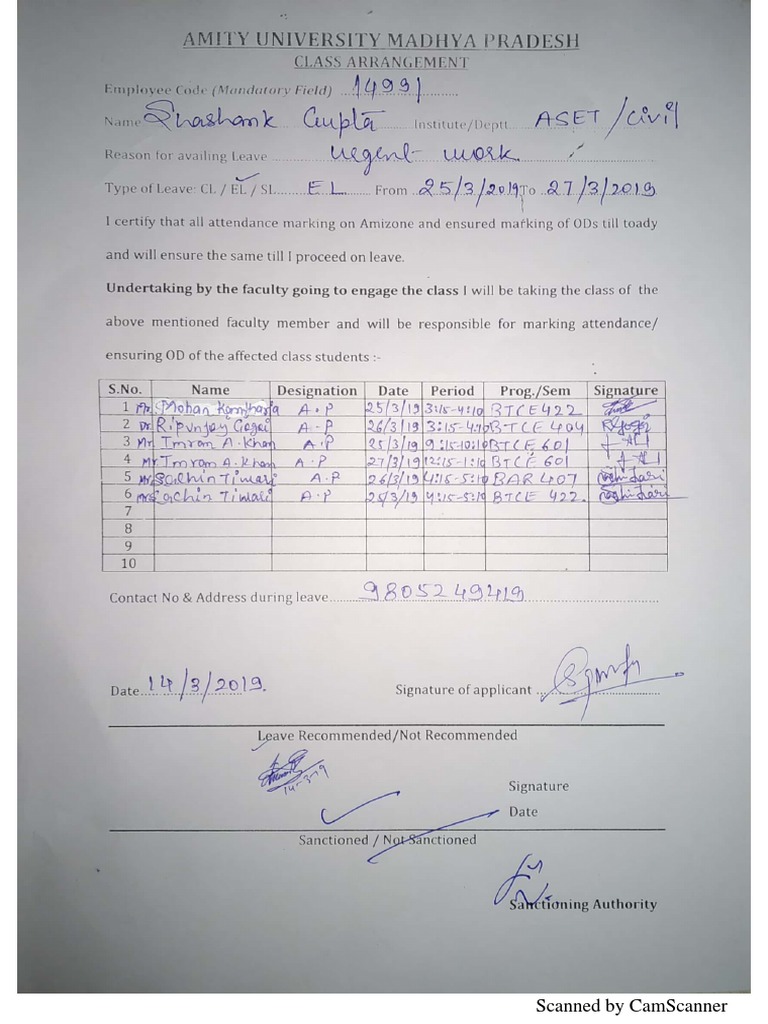 AMITY UNIVERSITY MADHYA PRADESH
CLASS ARRANGEMENT
Employee Code (Mandatory Field) ...14991............
Name Shashank Gupta Institute/Deptt ASET/Civil
Reason for availing Leave urgent work
Type of Leave: CL / EL / SL EL From 25/3/2019 To 27/3/2019
I certify that all attendance marking on Amizone and ensured marking of ODs till toady
and will ensure the same till I proceed on leave.
Undertaking by the faculty going to engage the class I will be taking the class of the
above mentioned faculty member and will be responsible for marking attendance/
ensuring OD of the affected class students :-
S.No. Name Designation Date Period Prog./Sem Signature
1 Mr. Mohan A.P 25/3/19 3:15-4:10 BTCE 422
2 Dr Ripunjoy Gogoi A-P 26/3/19 3:15-4:10 BTCE 404
3 Mr Imran A. Khan A.P 25/3/19 9:15-10:10 BTCE 601
4 Mr Imran A. Khan A.P 27/3/19 12:15-1:10 BTCE 601
5 Mr Sachin Tiwari A.P 26/3/19 4:15-5:10 BAR 407
6 Mr Sachin Tiwari A.P 25/3/19 4:15-5:10 BTCE 422
7
8
9
10
Contact No & Address during leave 9805249419
Date 14/3/2019. Signature of applicant
Leave Recommended/Not Recommended
14-3-19
Signature
Date
Sanctioned / Not Sanctioned
Sanctioning Authority
Scanned by CamScanner